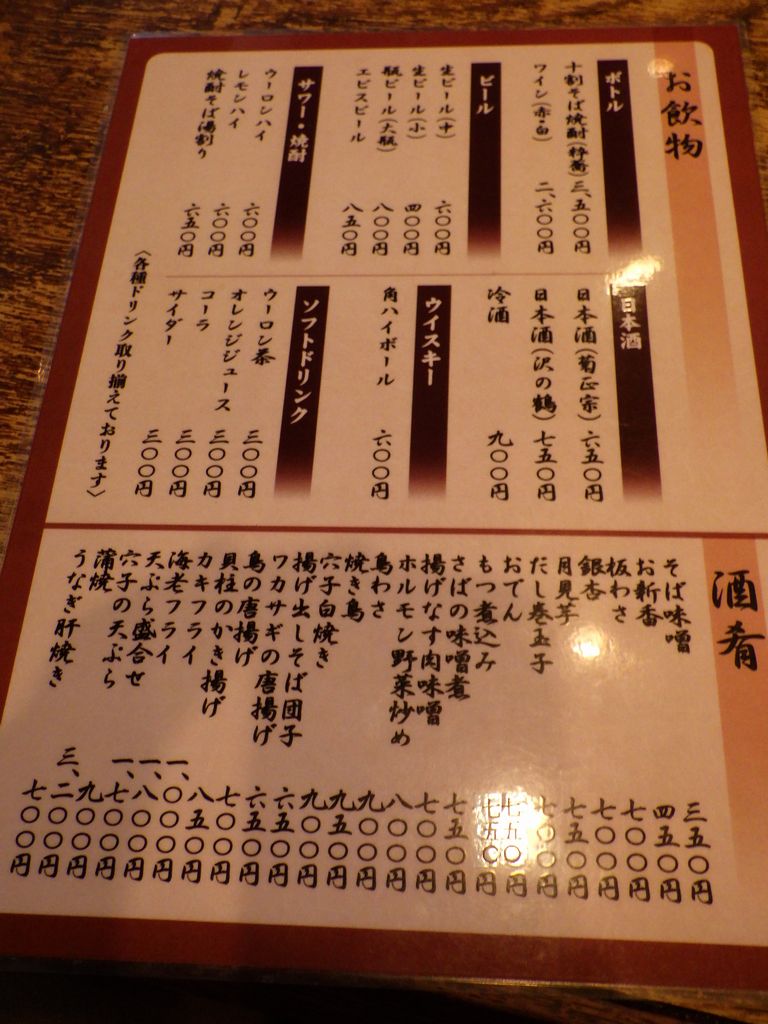 お飲物
ボトル
十割そば焼酎(粋蕎) 三、五〇〇円
ワイン(赤・白) 二、六〇〇円
ビール
生ビール(中) 六〇〇円
生ビール(小) 四〇〇円
瓶ビール(大瓶) 八〇〇円
エビスビール 八五〇円
サワー・焼酎
ウーロンハイ 六〇〇円
レモンハイ 六〇〇円
焼酎そば湯割り 六五〇円
日本酒
日本酒(菊正宗) 六五〇円
日本酒(沢の鶴) 七五〇円
冷酒 九〇〇円
ウイスキー
角ハイボール 六〇〇円
ソフトドリンク
ウーロン茶 三〇〇円
オレンジジュース 三〇〇円
コーラ 三〇〇円
サイダー 三〇〇円
〈各種ドリンク取り揃えております〉
酒肴
そば味噌 三五〇円
お新香 四五〇円
板わさ 七〇〇円
銀杏 七〇〇円
月見芋 七五〇円
だし巻玉子 七〇〇円
おでん 七五〇円
もつ煮込み 七五〇円
さばの味噌煮 七五〇円
揚げなす肉味噌 七〇〇円
ホルモン野菜炒め 八〇〇円
鳥わさ 九〇〇円
焼き鳥 九五〇円
穴子白焼き 九〇〇円
揚げ出しそば団子 六五〇円
ワカサギの唐揚げ 六五〇円
鳥の唐揚げ 七〇〇円
貝柱のかき揚げ 八五〇円
カキフライ 一、〇〇〇円
海老フライ 一、八〇〇円
天ぷら盛合せ 一、七〇〇円
穴子の天ぷら 九〇〇円
蒲焼 三、二〇〇円
うなぎ肝焼き 七〇〇円